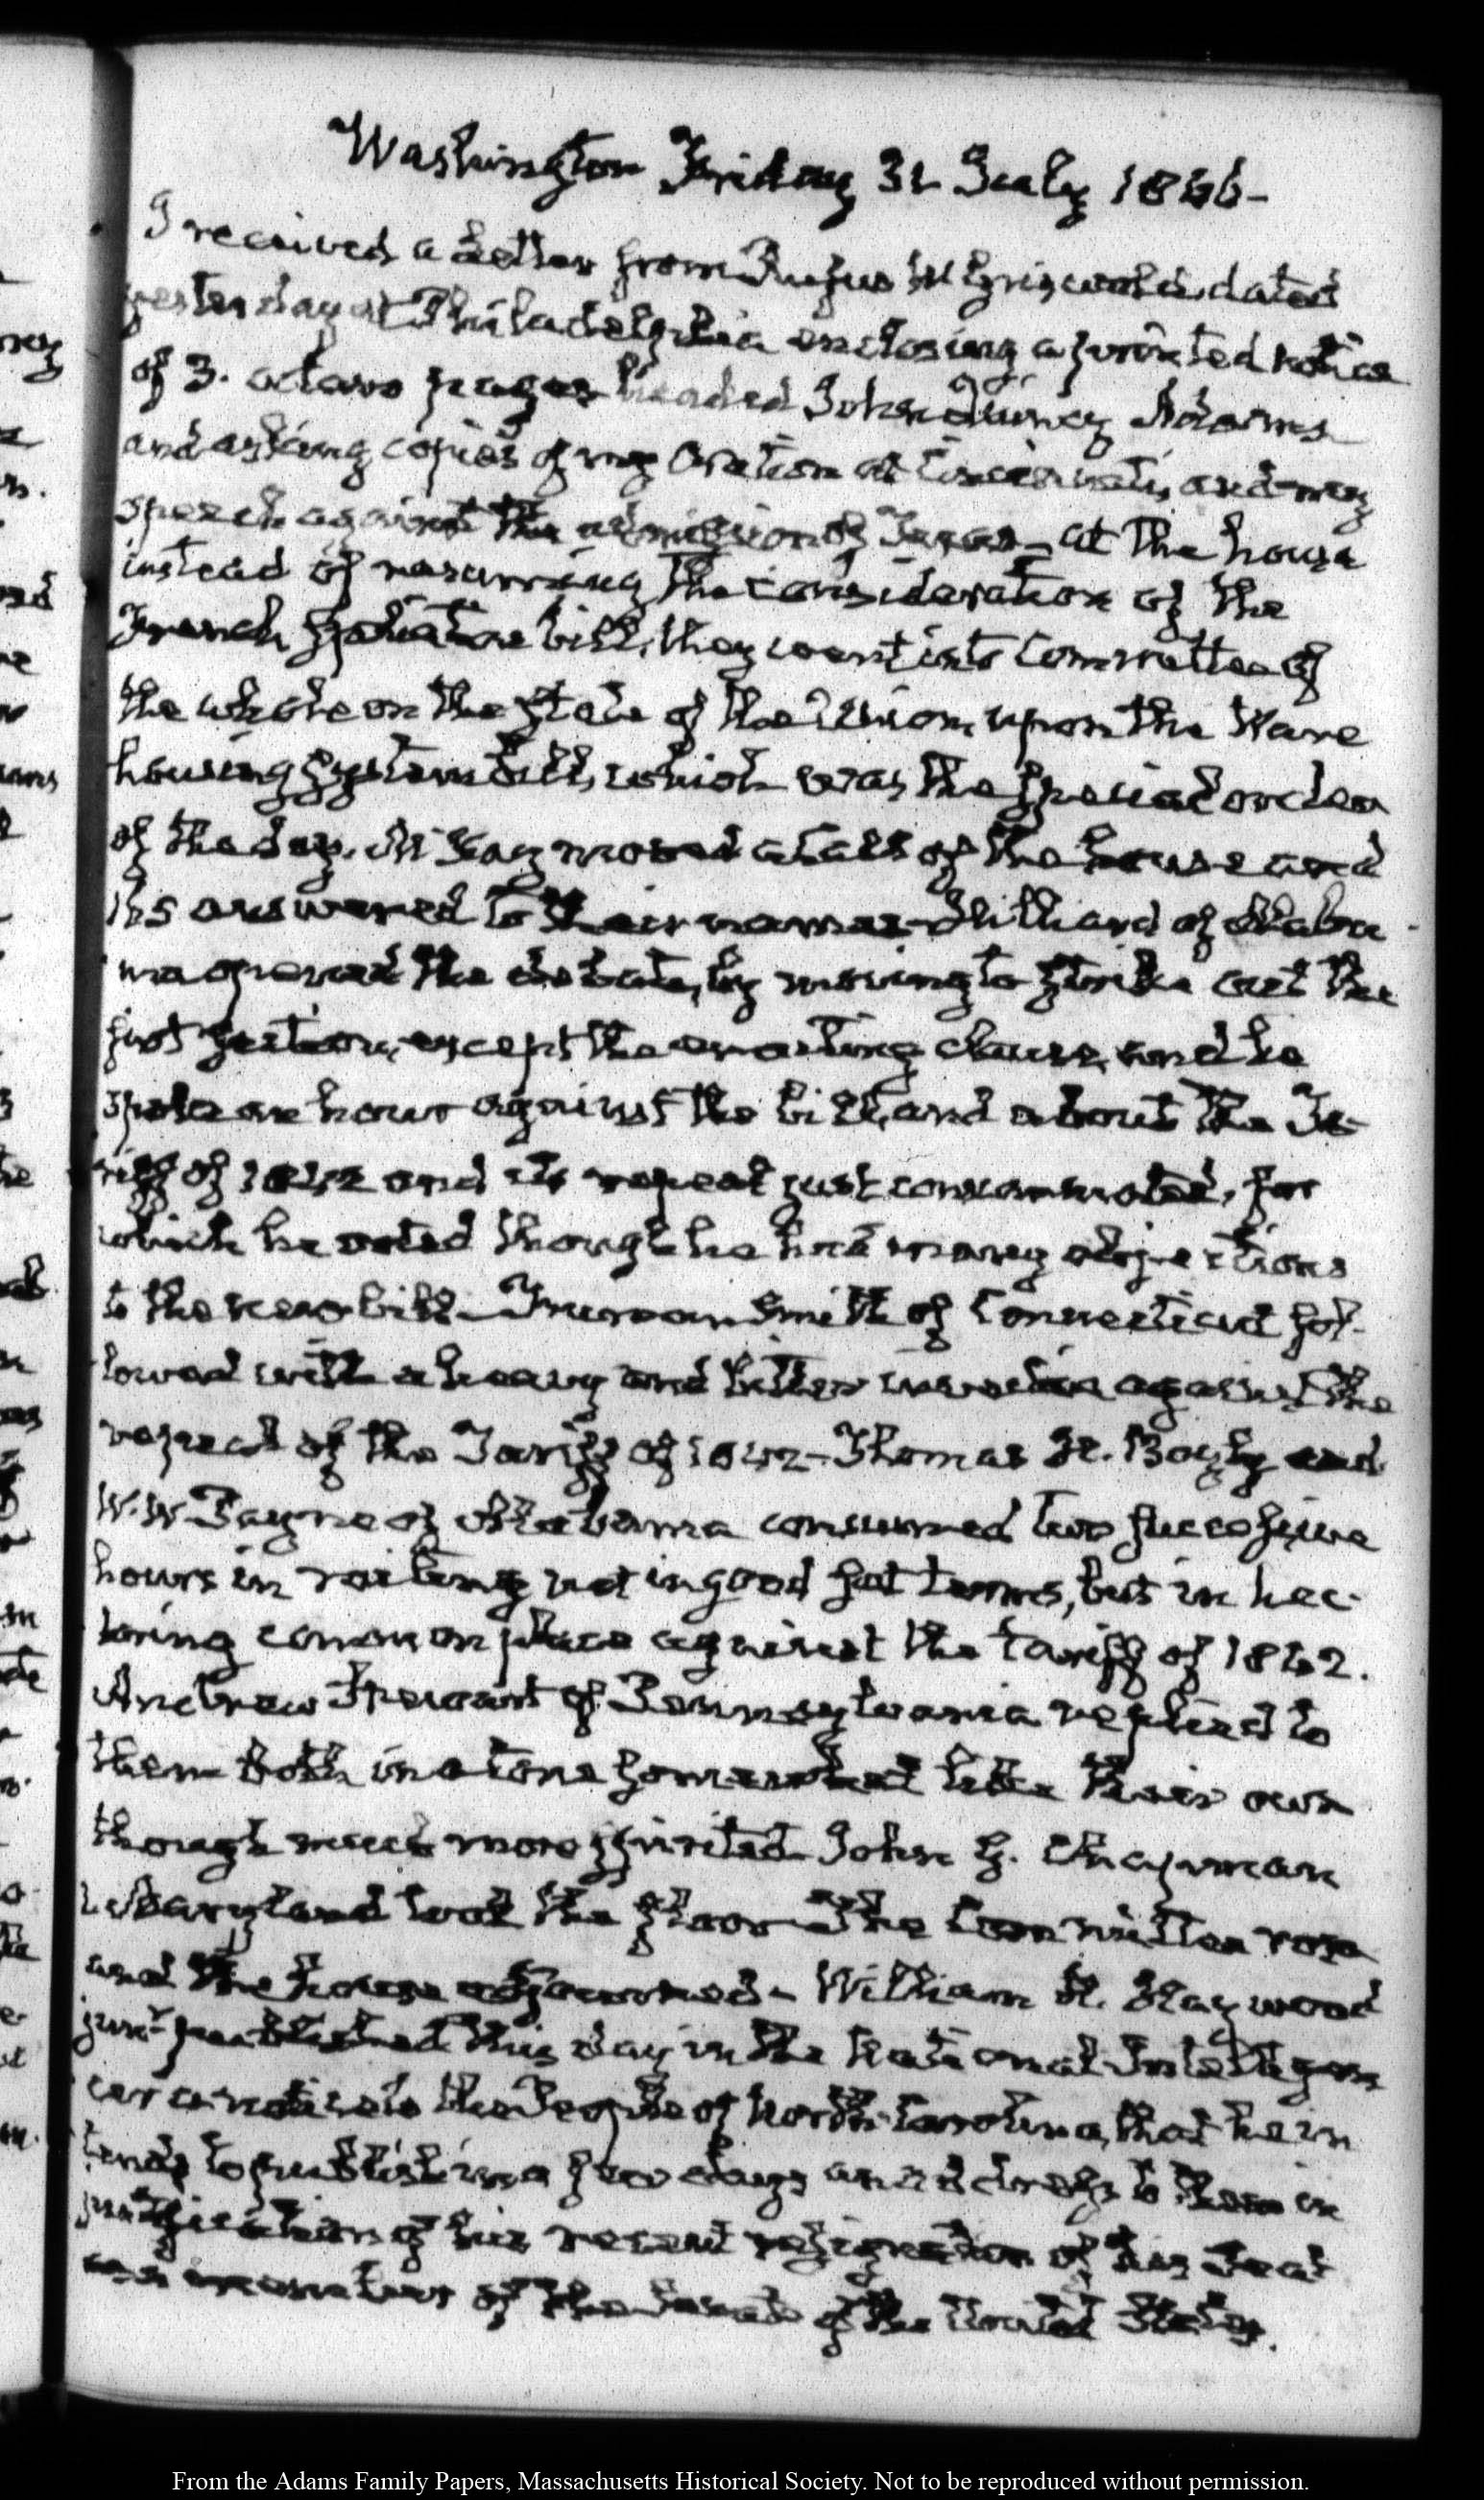 Washington Friday 31 July 1846-
I received a Letter from Rufus W Griswold, dated
yesterday at Philadelphia enclosing a printed notice
of 3. octavo pages headed John Quincy Adams
and asking copies of my Oration at Cincinnati, and my
speech against the admission of Texas- at the house
instead of resuming the consideration of the
French Spoliation bill, they went into Committee of
the whole on the State of the Union, upon the Ware
housing System bill, which was the special order
of the day. moved a call of the house and
answered to their names- Hilliard of Alaba
ma opened the debate, by moving to strike out the
first section, except the enacting clause, and he
spoke an hour against the bill, and about the Ta-
riff of 1842 and its repeal just consummated, for
which he voted though he had many objections
to the new bill- Truman Smith of Connecticut fol-
lowed with a heavy and bitter invective against the
repeal of the Tariff of 1842- Thomas H. Bayly and
W. W Payne of Alabama consumed two successive
hours in railing not in good set terms, but in hec-
toring common place against the tariff of 1842.
Andrew Stewart of Pennsylvania replied to
them both in a tone somewhat like their own
though much more spirited- John G. Chapman
Maryland took the floor- The Committee rose
and the house adjourned- William H. Haywood
junr. published this day in the National Intelligen
cer a notice to the People of North-Carolina, that he in
tends to publish in a few days an address to them in
justification of his recent resignation of his Seat
as a member of the Senate of the United States.